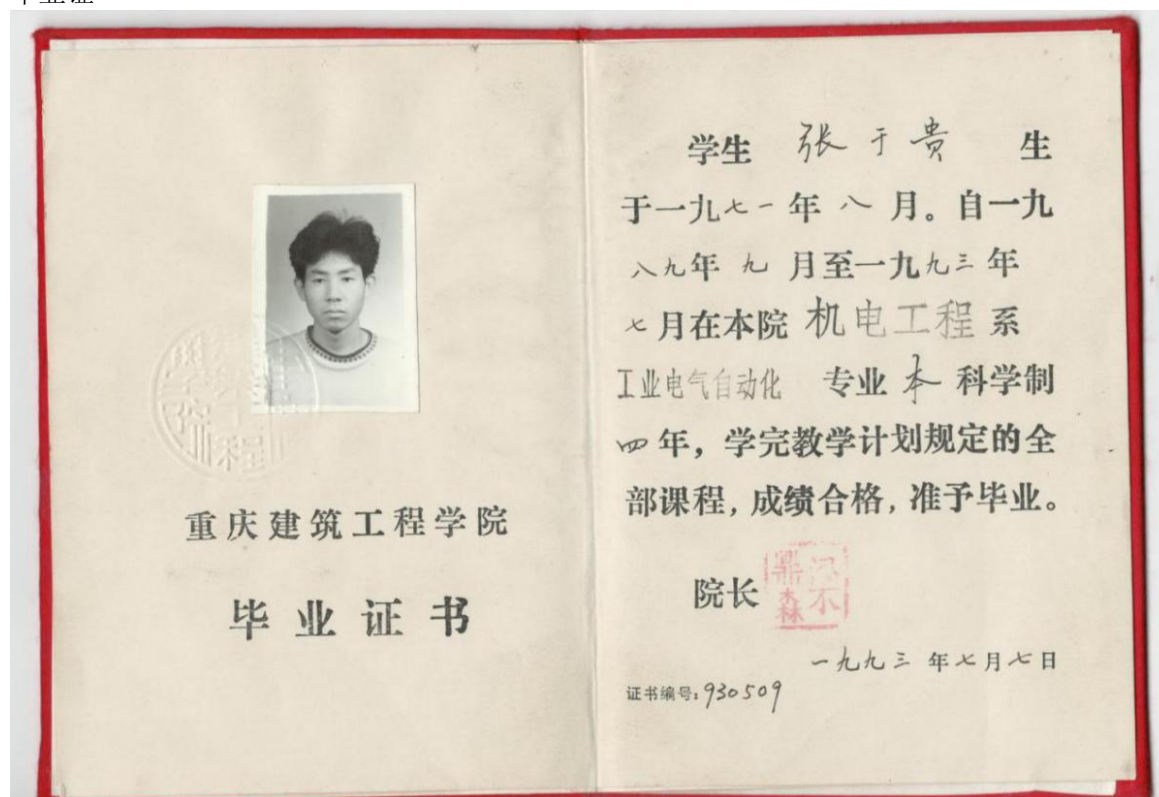 重庆建筑工程学院
毕业证书
学生 张于贵 生
于一九七一年八月。自一九
八九年九月至一九九三年
七月在本院机电工程系
工业电气自动化 专业本科学制
四年，学完教学计划规定的全
部课程，成绩合格，准予毕业。
院长
一九九三年七月七日
证书编号：930509